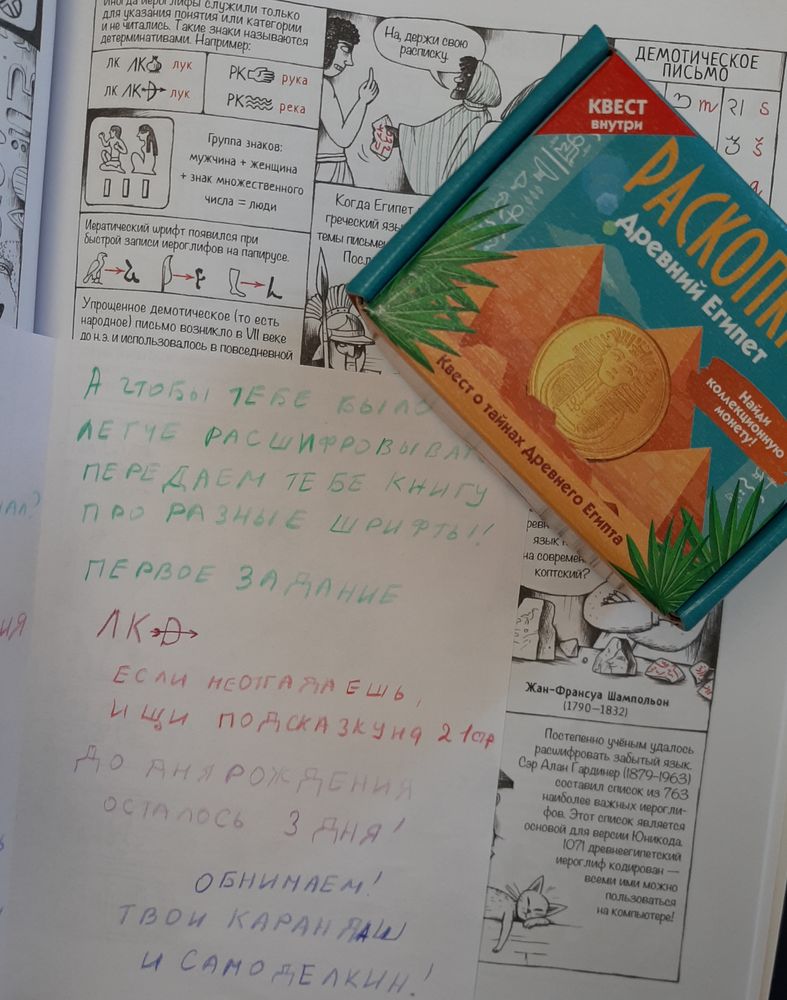 Иногда иероглифы служили только
для указания понятия или категории
и не читались. Такие знаки называются
детерминативами. Например:
ЛК ЛК лук
ЛК ЛК лук
РК рука
РК река
Группа знаков:
мужчина + женщина
+ знак множественного
числа = люди
Иератический шрифт появился при
быстрой записи иероглифов на папирусе.
Упрощенное демотическое (то есть
народное) письмо возникло в VII веке
до н.э. и использовалось в повседневной
На, держи свою
расписку.
Когда Египет
греческий язы
темы письме
Посл
ДЕМОТИЧЕСКОЕ
ПИСЬМО
m
s
š
КВЕСТ
внутри
РАСКОПКИ
Древний Египет
Найди
коллекционную
монету!
Квест о тайнах Древнего Египта
А ЧТОБЫ ТЕБЕ БЫЛО
ЛЕГЧЕ РАСШИФРОВЫВАТ
ПЕРЕДАЕМ ТЕБЕ КНИГУ
ПРО РАЗНЫЕ ШРИФТЫ!
ПЕРВОЕ ЗАДАНИЕ
ЛК
ЕСЛИ НЕ ОТГАДАЕШЬ,
ИЩИ ПОДСКАЗКУ НА 21 СТР
ДО ДНЯ РОЖДЕНИЯ
ОСТАЛОСЬ 3 ДНЯ!
ОБНИМАЕМ!
ТВОИ КАРАНДАШ
И САМОДЕЛКИН!
язык
на современ
коптский?
Жан-Франсуа Шампольон
(1790–1832)
Постепенно учёным удалось
расшифровать забытый язык.
Сэр Алан Гардинер (1879–1963)
составил список из 763
наиболее важных иерогли-
фов. Этот список является
основой для версии Юникода.
1071 древнеегипетский
иероглиф кодирован —
всеми ими можно
пользоваться
на компьютере!